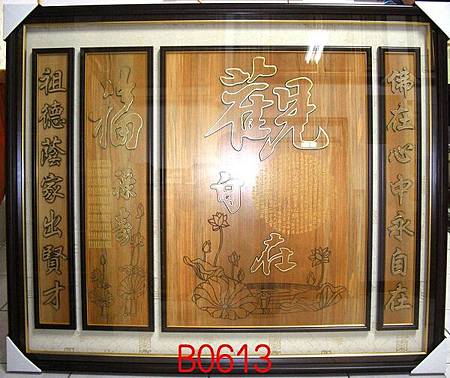 佛在心中永自在
觀自在
福
祖德蔭家出賢才
B0613